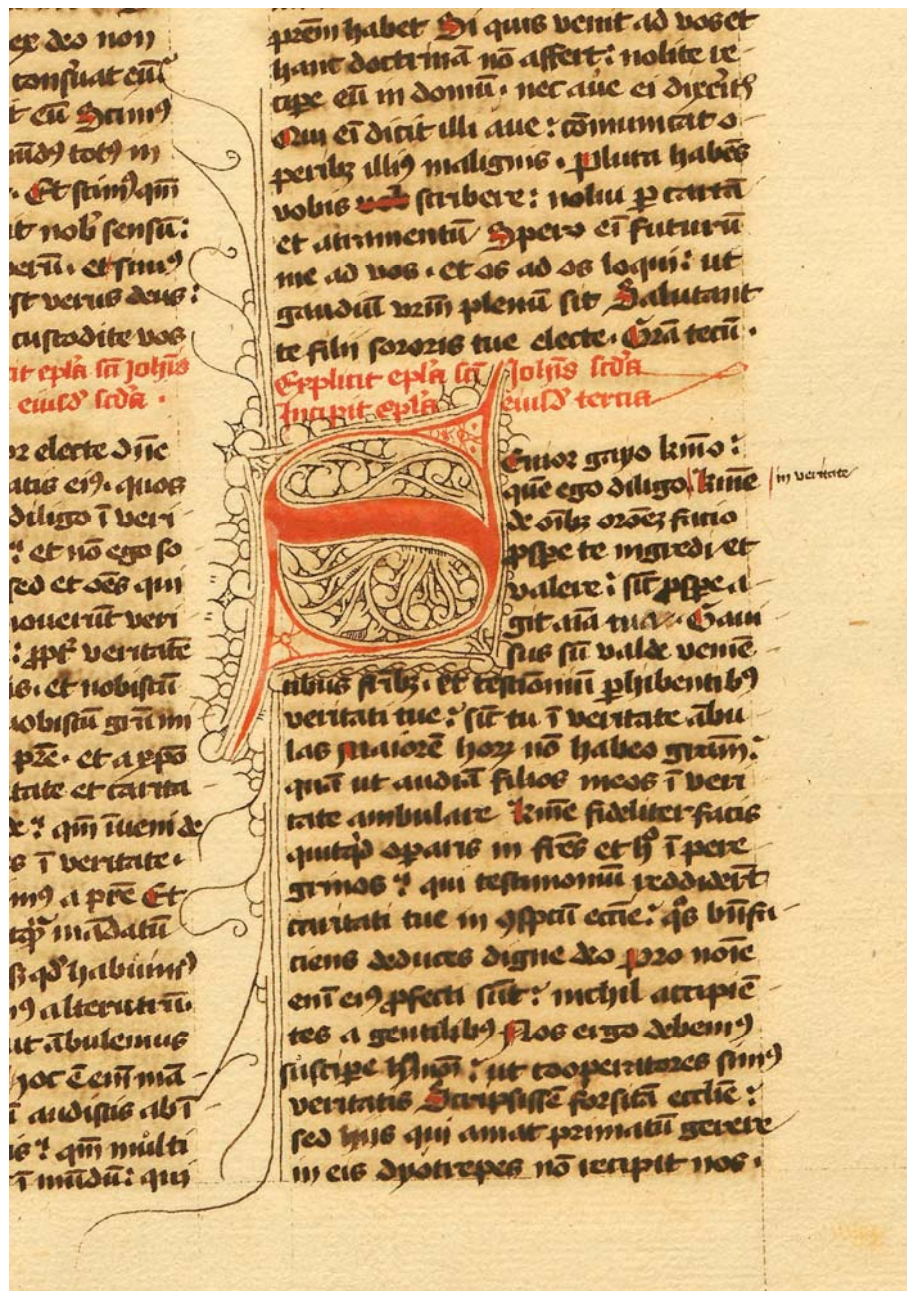 ex deo non
conſ̾uat eū
t eū Scimꝯ
mūdꝯ totꝯ in
Et ſcimꝯ qm̄
it nob̾ ſenſū :
verū · et ſimꝯ
ſt verus deus :
cuſtodite vos
it epl̄a sc̄i Joh̄is
eiuſd̾ ſcd̾a ·
or electe dn̄e
atis eiꝯ · quos
diligo ī veri
et nō ego ſo
ſed et oēs qui
nouerūt veri
ꝓpt̾ veritatē
is · et nobiſcū
nobiſcū
pr̄e · et a xp̄o
tate et carita
qm̄ īueni de
s ī veritate ·
imꝯ a pr̄e Et
mādatū
qd̾ habuimꝯ
alterutrū ·
ut ābulemus
hoc ē eni᷒ mā
audiſtis ab ī
is · qm̄ mul̾ti
ī mūdū : qui
pr̄em habet Si quis venit ad vos et
hanc doctrinā nō affert : nolite re
cipe eū in domū · nec aue ei dixerit̾
Qui ei᷒ dicit illi aue : cōmunicat o
peribꝫ illiꝯ malignis · Plura habēs
vobis ſcribere : nolui ꝑ cartā
et atramentū Spero ei᷒ futurū
me ad vos · et os ad os loqui : ut
gaudiū vr̄m plenū ſit Salutant
te filii ſororis tue electe · Gr̄a tecū ·
Explicit epl̄a sc̄i Joh̄is ſcd̾a
Incipit epl̄a eiuſd̾ tercia
Enior gayo kmo :
quē ego diligo kme
in veritate
de oībꝫ oroēꝫ facio
ꝓſpe te ingredi et
valere : ſic̄ ꝓſpe a-
git aīa tua · Gaui
ſus ſū valde veniē
tibus fr̄ibꝫ · et teſtioniū ꝑhibentibꝯ
veritati tue : ſic̄ tu ī veritate ābu
las Maiorē horꝝ nō habeo gram :
quā ut audiā filios meos ī veri
tate ambulare kme fideliter facis
quitqd̾ oꝑaris in fr̄es et hͦ ī pere
grinos : qui teſtimoniū reddider̄t
caritati tue in ꝯſpc̄u eccīe : qͦs bn̄fa
ciens deduces digne deo Pro noīe
eni᷒ eiꝯ ꝓfecti ſūt : nichil accipiē
tes a gentilibꝯ Nos ergo debemꝯ
ſuſcipe hꝰmōi : ut cooperatores ſimꝯ
veritatis Scripſiſſē forſitā eccl̄ie :
ſed hiis qui amat primatū gerere
in eis dyotrepes nō recipit nos ·